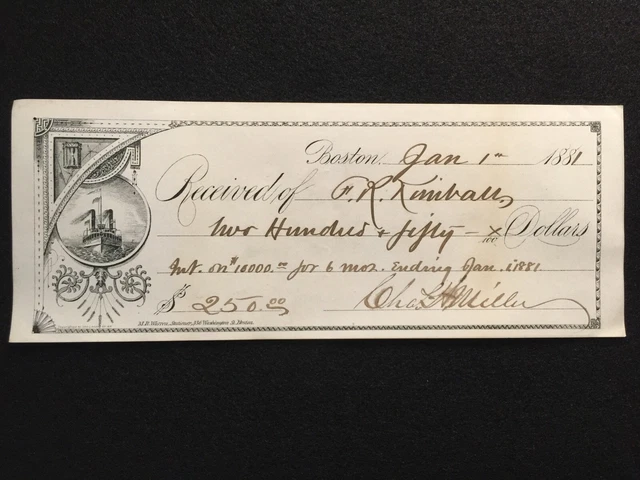 Boston, Jan 1st 1881
Received of F. R. Kimball,
Two Hundred & fifty - x/100 Dollars
Int. on $10000.00 for 6 mos. Ending Jan. 1 1881
$ 250.00 Chas H Miller
Stationer, Washington St. Boston.